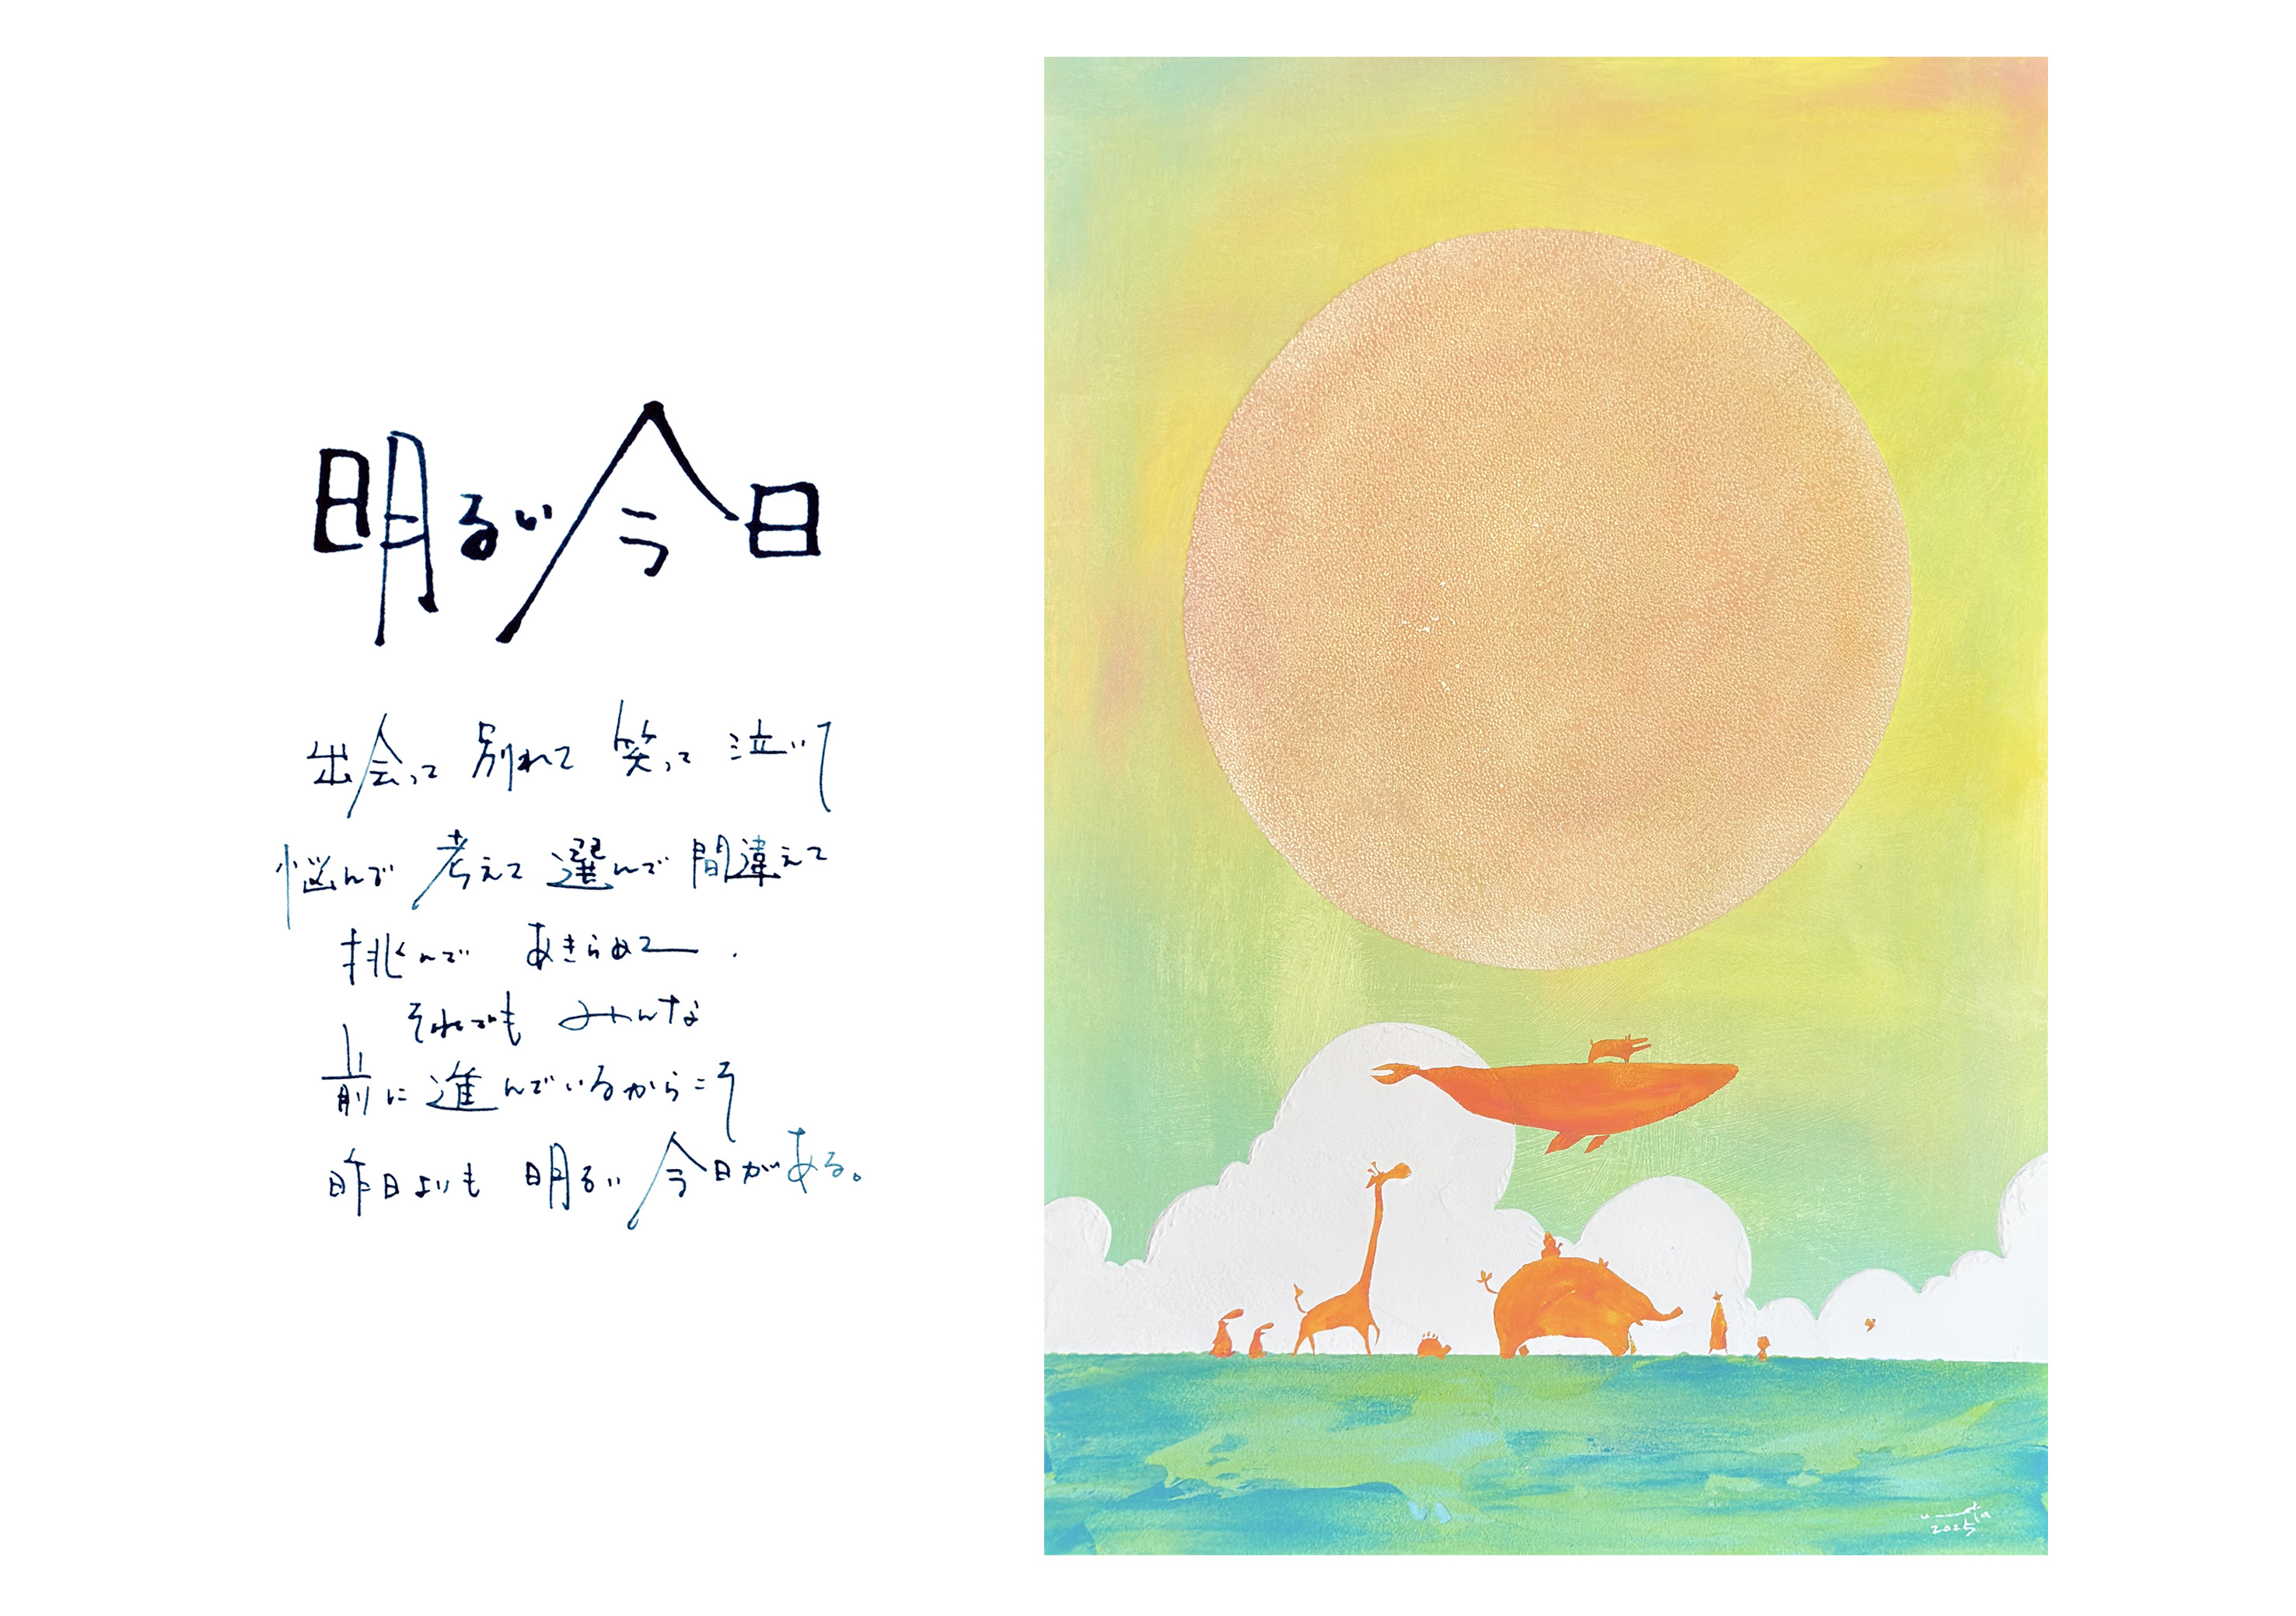 明るい今日
出会って 別れて 笑って 泣いて
悩んで 考えて 選んで 間違えて
挑んで あきらめて.
それでも みんな
前に進んでいるからこそ
昨日よりも 明るい今日がある。
2025